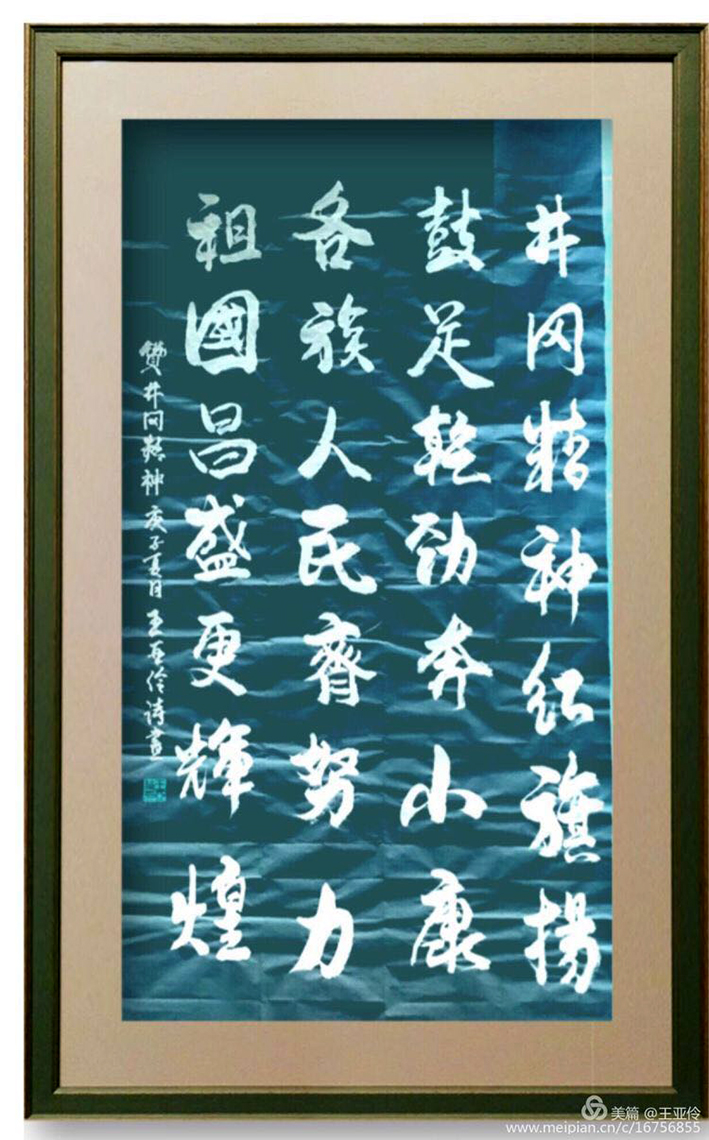 井冈精神红旗揚
鼓足乾劲奔小康
各族人民齊努力
祖國昌盛更輝煌
赞井冈精神庚子夏月王亚伶诗書
美篇 @王亚伶
www.meipian.cn/c/16756855